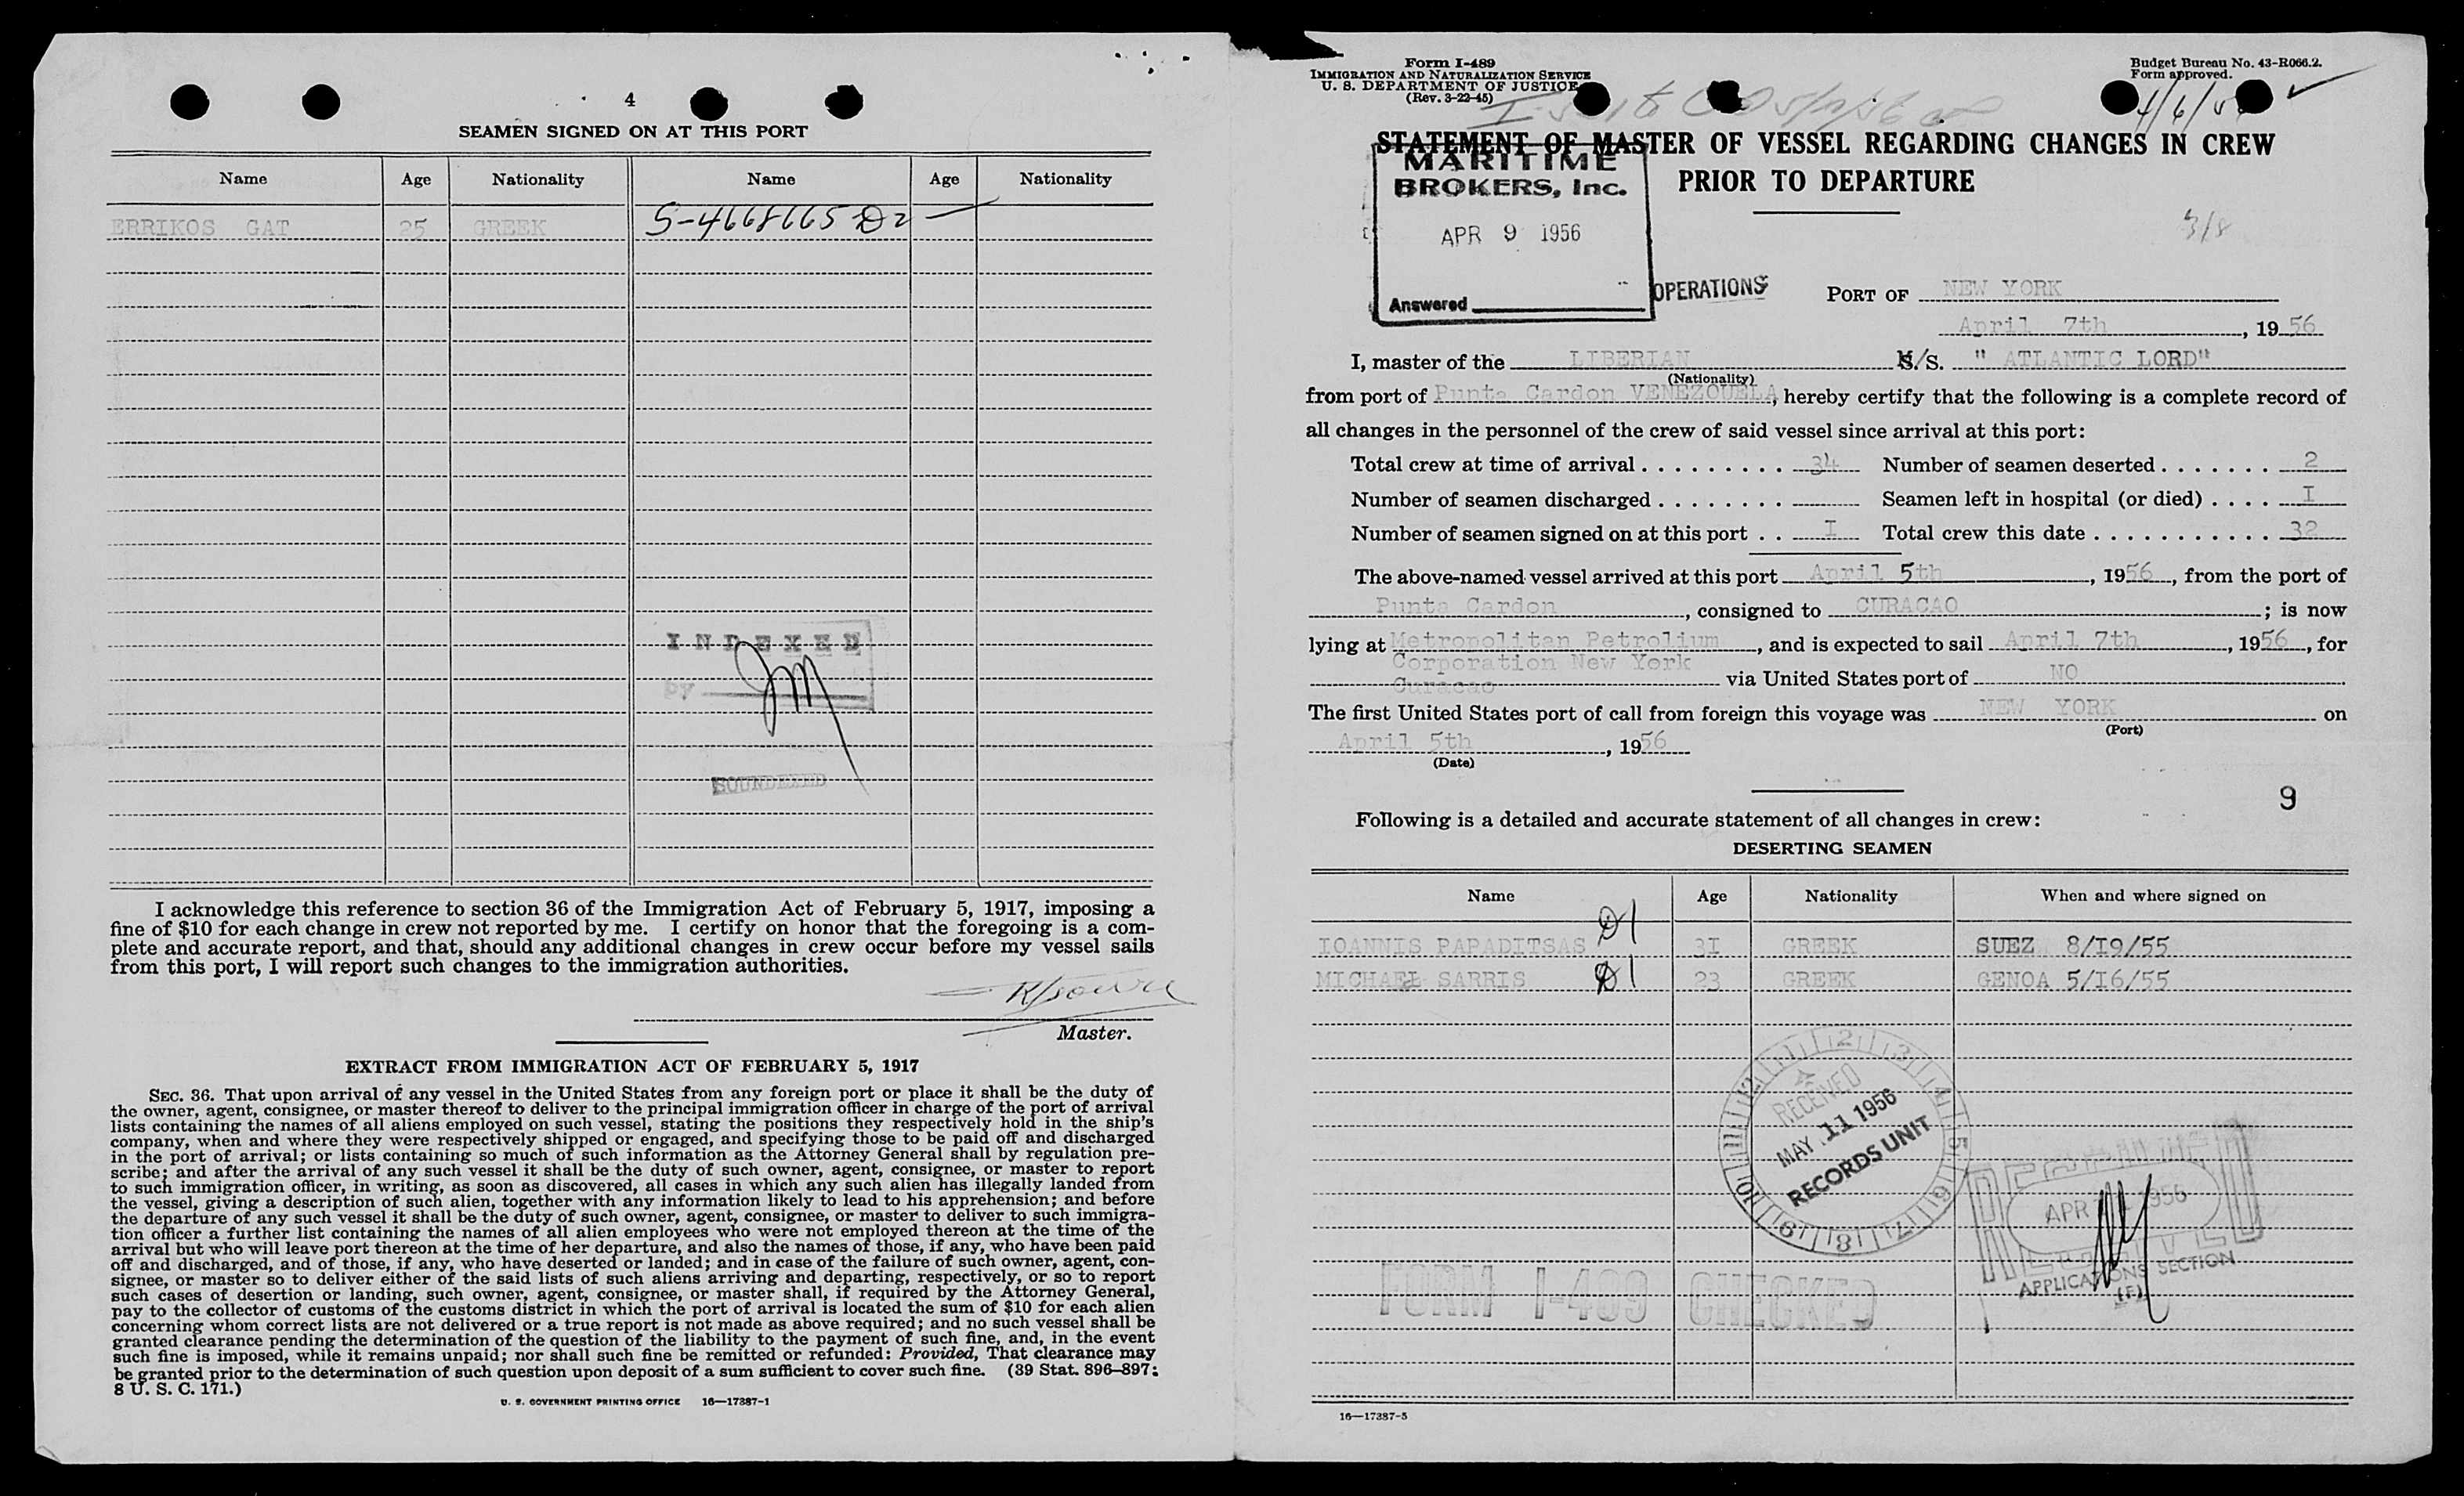 4
SEAMEN SIGNED ON AT THIS PORT
Name Age Nationality Name Age Nationality
ERRIKOS GAT 25 GREEK S-4668665 D2
INDEXED
by
SOUNDEXED
I acknowledge this reference to section 36 of the Immigration Act of February 5, 1917, imposing a
fine of $10 for each change in crew not reported by me. I certify on honor that the foregoing is a com-
plete and accurate report, and that, should any additional changes in crew occur before my vessel sails
from this port, I will report such changes to the immigration authorities.
Master.
EXTRACT FROM IMMIGRATION ACT OF FEBRUARY 5, 1917
SEC. 36. That upon arrival of any vessel in the United States from any foreign port or place it shall be the duty of
the owner, agent, consignee, or master thereof to deliver to the principal immigration officer in charge of the port of arrival
lists containing the names of all aliens employed on such vessel, stating the positions they respectively hold in the ship's
company, when and where they were respectively shipped or engaged, and specifying those to be paid off and discharged
in the port of arrival; or lists containing so much of such information as the Attorney General shall by regulation pre-
scribe; and after the arrival of any such vessel it shall be the duty of such owner, agent, consignee, or master to report
to such immigration officer, in writing, as soon as discovered, all cases in which any such alien has illegally landed from
the vessel, giving a description of such alien, together with any information likely to lead to his apprehension; and before
the departure of any such vessel it shall be the duty of such owner, agent, consignee, or master to deliver to such immigra-
tion officer a further list containing the names of all alien employees who were not employed thereon at the time of the
arrival but who will leave port thereon at the time of her departure, and also the names of those, if any, who have been paid
off and discharged, and of those, if any, who have deserted or landed; and in case of the failure of such owner, agent, con-
signee, or master so to deliver either of the said lists of such aliens arriving and departing, respectively, or so to report
such cases of desertion or landing, such owner, agent, consignee, or master shall, if required by the Attorney General,
pay to the collector of customs of the customs district in which the port of arrival is located the sum of $10 for each alien
concerning whom correct lists are not delivered or a true report is not made as above required; and no such vessel shall be
granted clearance pending the determination of the question of the liability to the payment of such fine, and, in the event
such fine is imposed, while it remains unpaid; nor shall such fine be remitted or refunded: Provided, That clearance may
be granted prior to the determination of such question upon deposit of a sum sufficient to cover such fine. (39 Stat. 896-897;
8 U. S. C. 171.)
U. S. GOVERNMENT PRINTING OFFICE 16—17387-1
Form I-489
IMMIGRATION AND NATURALIZATION SERVICE
U. S. DEPARTMENT OF JUSTICE
(Rev. 3-22-45)
Budget Bureau No. 43-R066.2.
Form approved.
STATEMENT OF MASTER OF VESSEL REGARDING CHANGES IN CREW
PRIOR TO DEPARTURE
MARITIME
BROKERS, Inc.
APR 9 1956
Answered
OPERATIONS
3/8
PORT OF NEW YORK
April 7th, 1956
I, master of the LIBERIAN S/S. " ATLANTIC LORD"
(Nationality)
from port of Punta Cardon VENEZOUELA, hereby certify that the following is a complete record of
all changes in the personnel of the crew of said vessel since arrival at this port:
Total crew at time of arrival . . . . . . . . . 34 Number of seamen deserted . . . . . . . 2
Number of seamen discharged . . . . . . . . Seamen left in hospital (or died) . . . . I
Number of seamen signed on at this port . . I Total crew this date . . . . . . . . . . . 32
The above-named vessel arrived at this port April 5th, 1956, from the port of
Punta Cardon, consigned to CURACAO; is now
lying at Metropolitan Petrolium, and is expected to sail April 7th, 1956, for
Corporation New York
Curacao via United States port of NO
The first United States port of call from foreign this voyage was NEW YORK on
(Port)
April 5th, 1956
(Date)
9
Following is a detailed and accurate statement of all changes in crew:
DESERTING SEAMEN
Name Age Nationality When and where signed on
IOANNIS PAPADITSAS D1 3I GREEK SUEZ 8/I9/55
MICHAEL SARRIS D1 23 GREEK GENOA 5/I6/55
RECEIVED
MAY 11 1956
RECORDS UNIT
APR 1956
APPLICATIONS SECTION
(F)
FORM I-489 CHECKED
16—17387-5